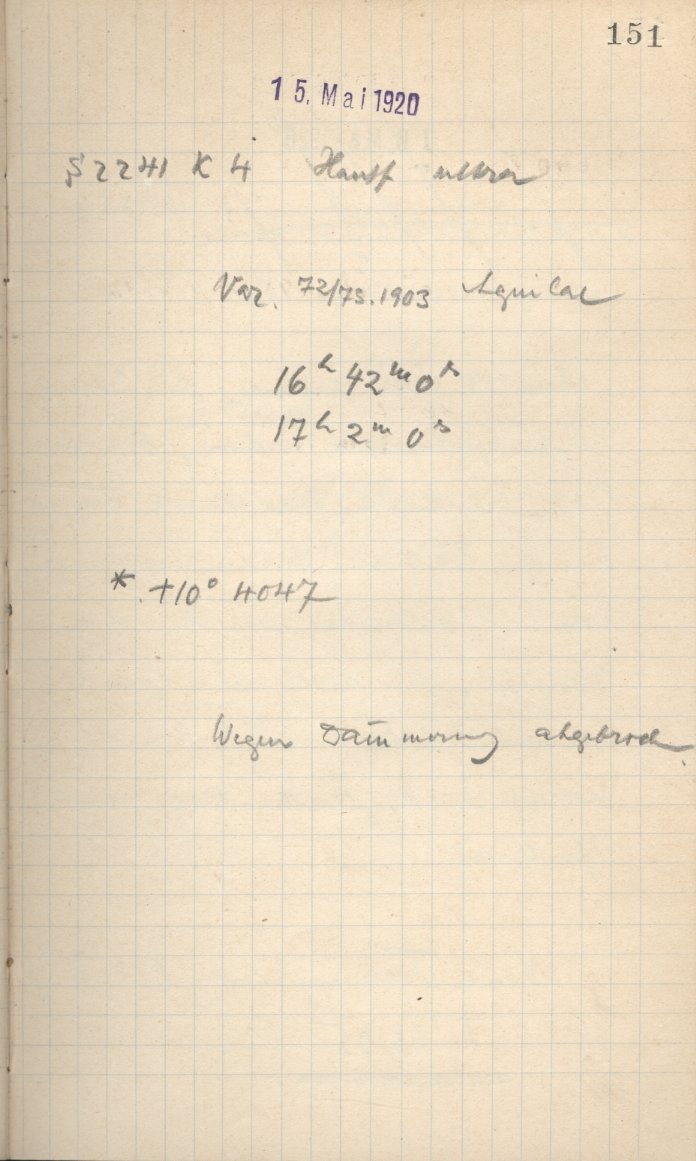 151
15. Mai 1920
2241 K 4 Hauff ultra
Var. 72/73.1903 Aquilae
16ʰ 42ᵐ 0ˢ
17ʰ 2ᵐ 0ˢ
*. +10° 4047
Wegen Dämmerung abgebroch